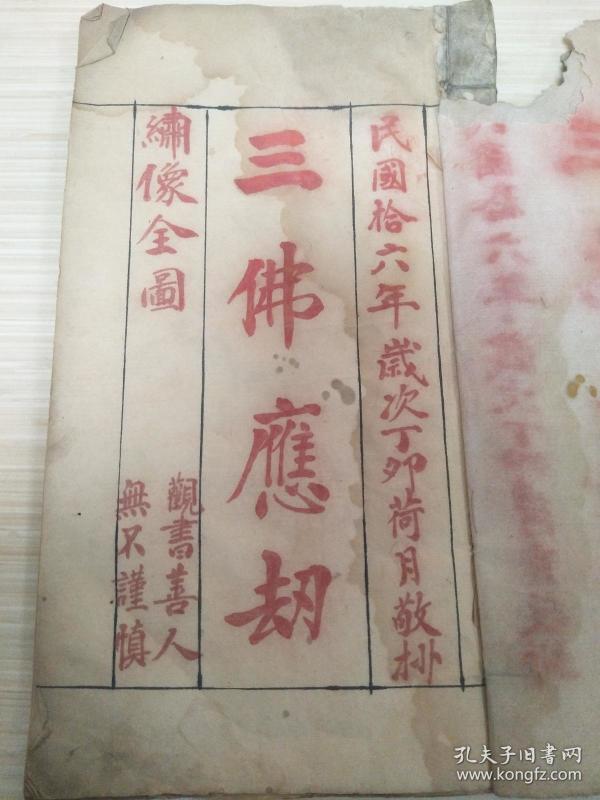 民國拾六年歲次丁卯荷月敬抄
三佛應劫
繡像全圖
觀書善人
無不謹慎
孔夫子旧书网
www.kongfz.com